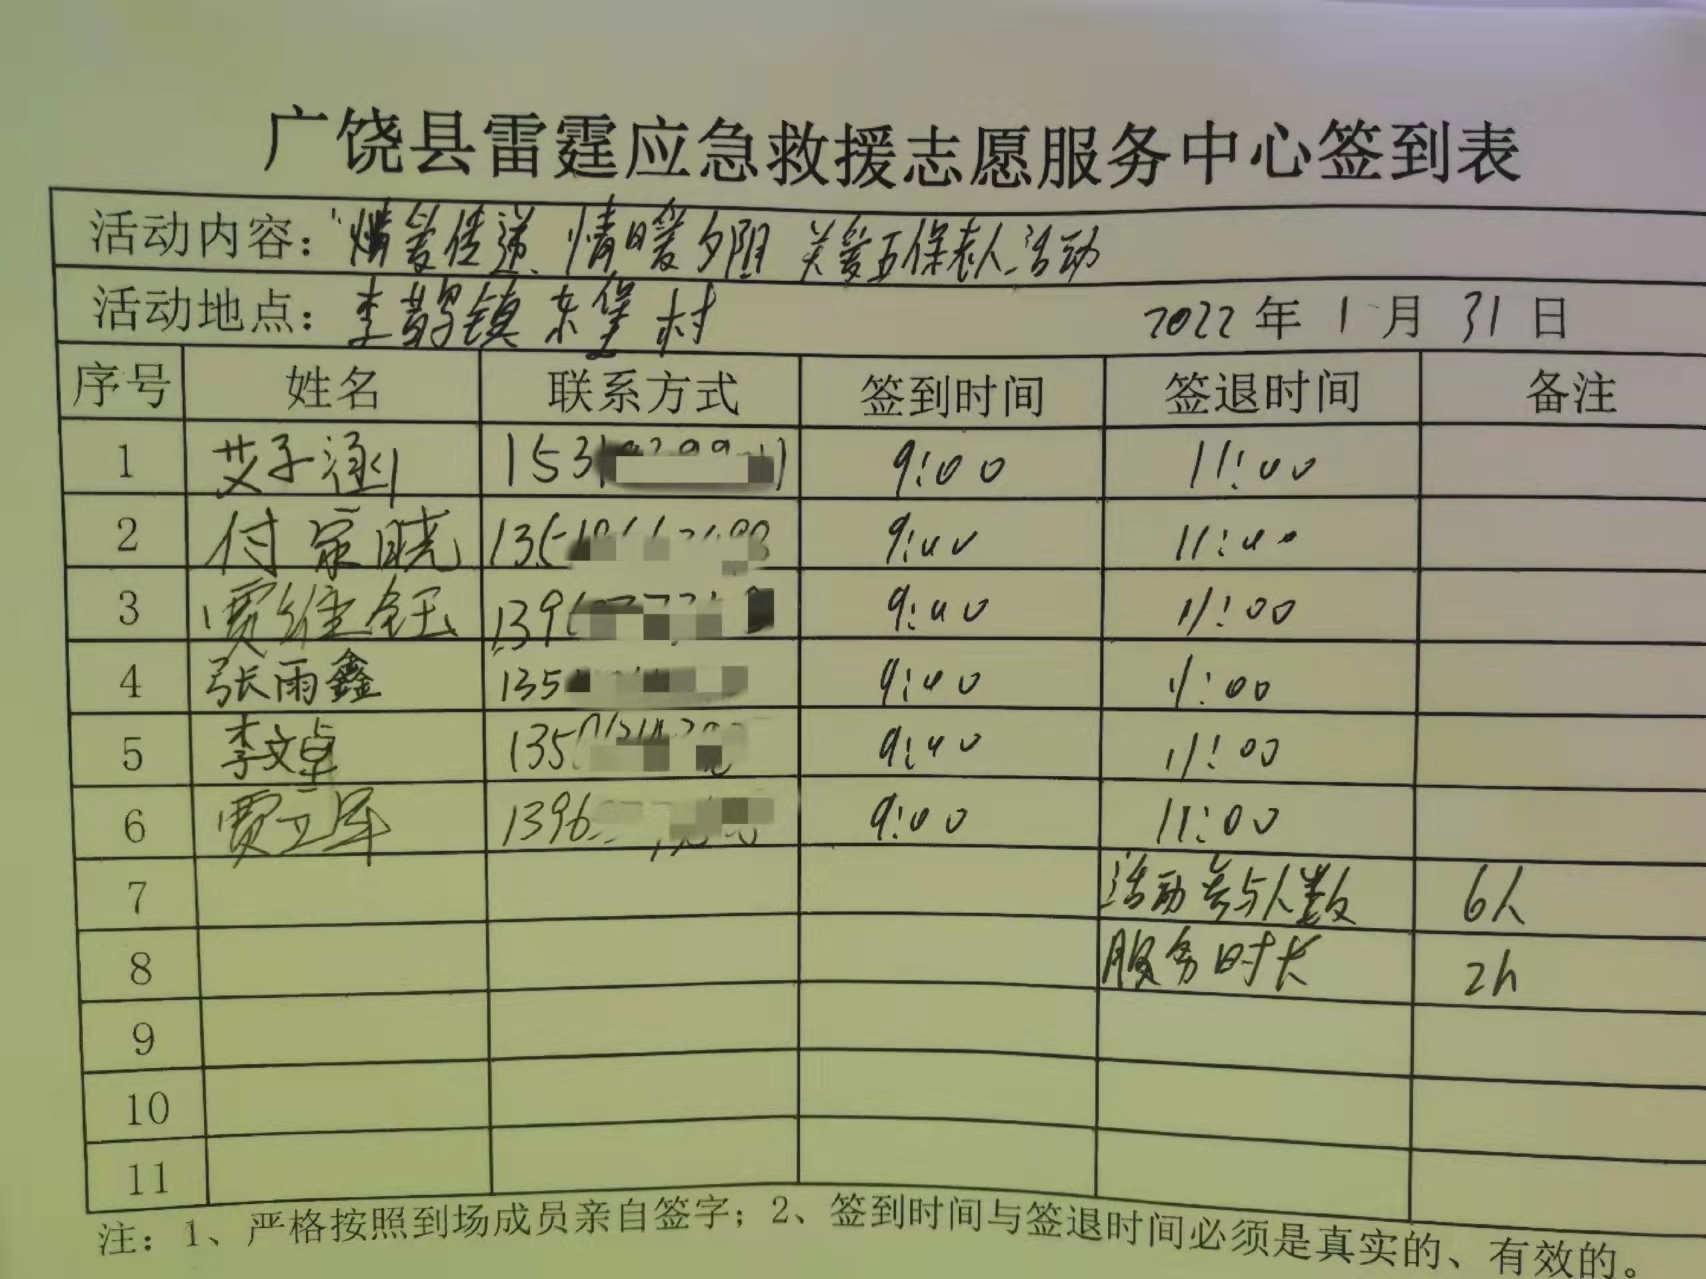 广饶县雷霆应急救援志愿服务中心签到表
活动内容：“情爱传递、情暖夕阳 关爱五保老人活动
活动地点：李鹊镇东堡村 2022年1月31日
序号 姓名 联系方式 签到时间 签退时间 备注
1 艾子涵 153 9:00 11:00
2 付家晓 135 9:00 11:00
3 贾维钰 139 9:00 11:00
4 张雨鑫 135 9:00 11:00
5 李文卓 135 9:00 11:00
6 贾立军 1396 9:00 11:00
7 活动参与人数 6人
8 服务时长 2h
9
10
11
注：1、严格按照到场成员亲自签字；2、签到时间与签退时间必须是真实的、有效的。